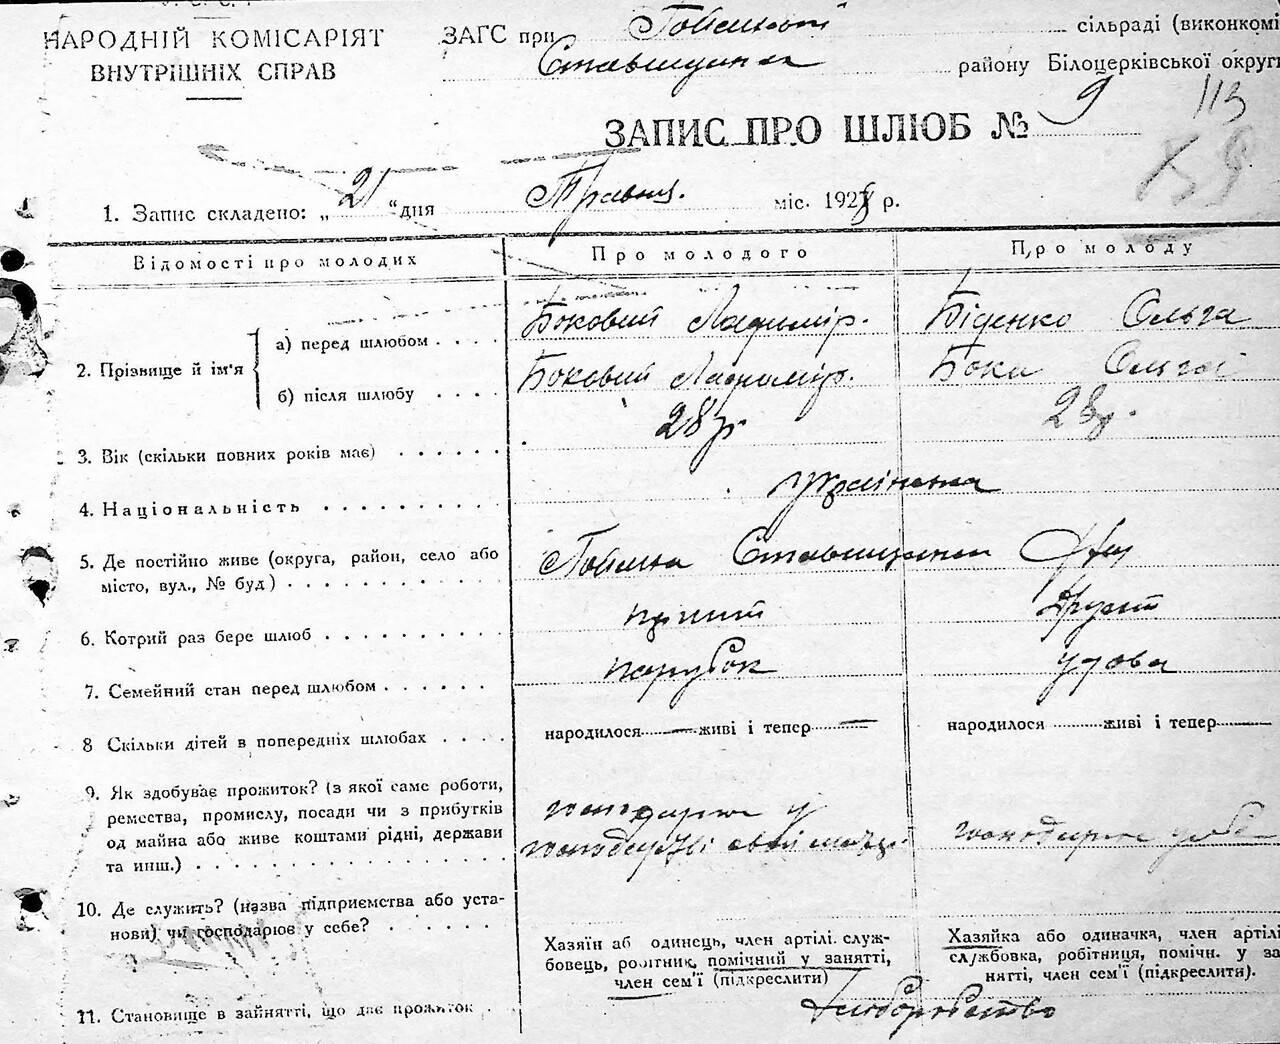 НАРОДНІЙ КОМІСАРІЯТ
ВНУТРІШНІХ СПРАВ
ЗАГС при сільраді (виконкомі
району Білоцерківської округи
113
ЗАПИС ПРО ШЛЮБ № 9
1. Запис складено: „ 21 “ дня Травня міс. 1928 р.
Відомості про молодих Про молодого Про молоду
2. Прізвище й ім'я
а) перед шлюбом . . . . Боковий Ладимір. Біденко Ольга
б) після шлюбу . . . . Боковий Ладимір. Ольга
3. Вік (скільки повних років має) . . . . . . 28 р. 28 р.
4. Національність . . . . . . . . . . українська
5. Де постійно живе (округа, район, село або
місто, вул., № буд) . . . . . . . . . . .
6. Котрий раз бере шлюб . . . . . . . . . . перший другий
7. Семейний стан перед шлюбом . . . . . . парубок удова
8 Скільки дітей в попередніх шлюбах . . . . народилося — живі і тепер — народилося живі і тепер —
9. Як здобуває прожиток? (з якої саме роботи,
ремества, промислу, посади чи з прибутків
од майна або живе коштами рідні, держави
та инш.) . . . . . . . . . . . . . . .
10. Де служить? (назва підприємства або уста-
нови) чи господарює у себе? . . . . . .
Хазяїн або одинець, член артілі. служ-
бовець, робітник, помічний у занятті,
член сем'ї (підкреслити)
Хазяйка або одиначка, член артілі
службовка, робітниця, помічн. у за
нятті, член сем'ї (підкреслити).
11. Становище в зайнятті, що дає прожиток . хліборобство